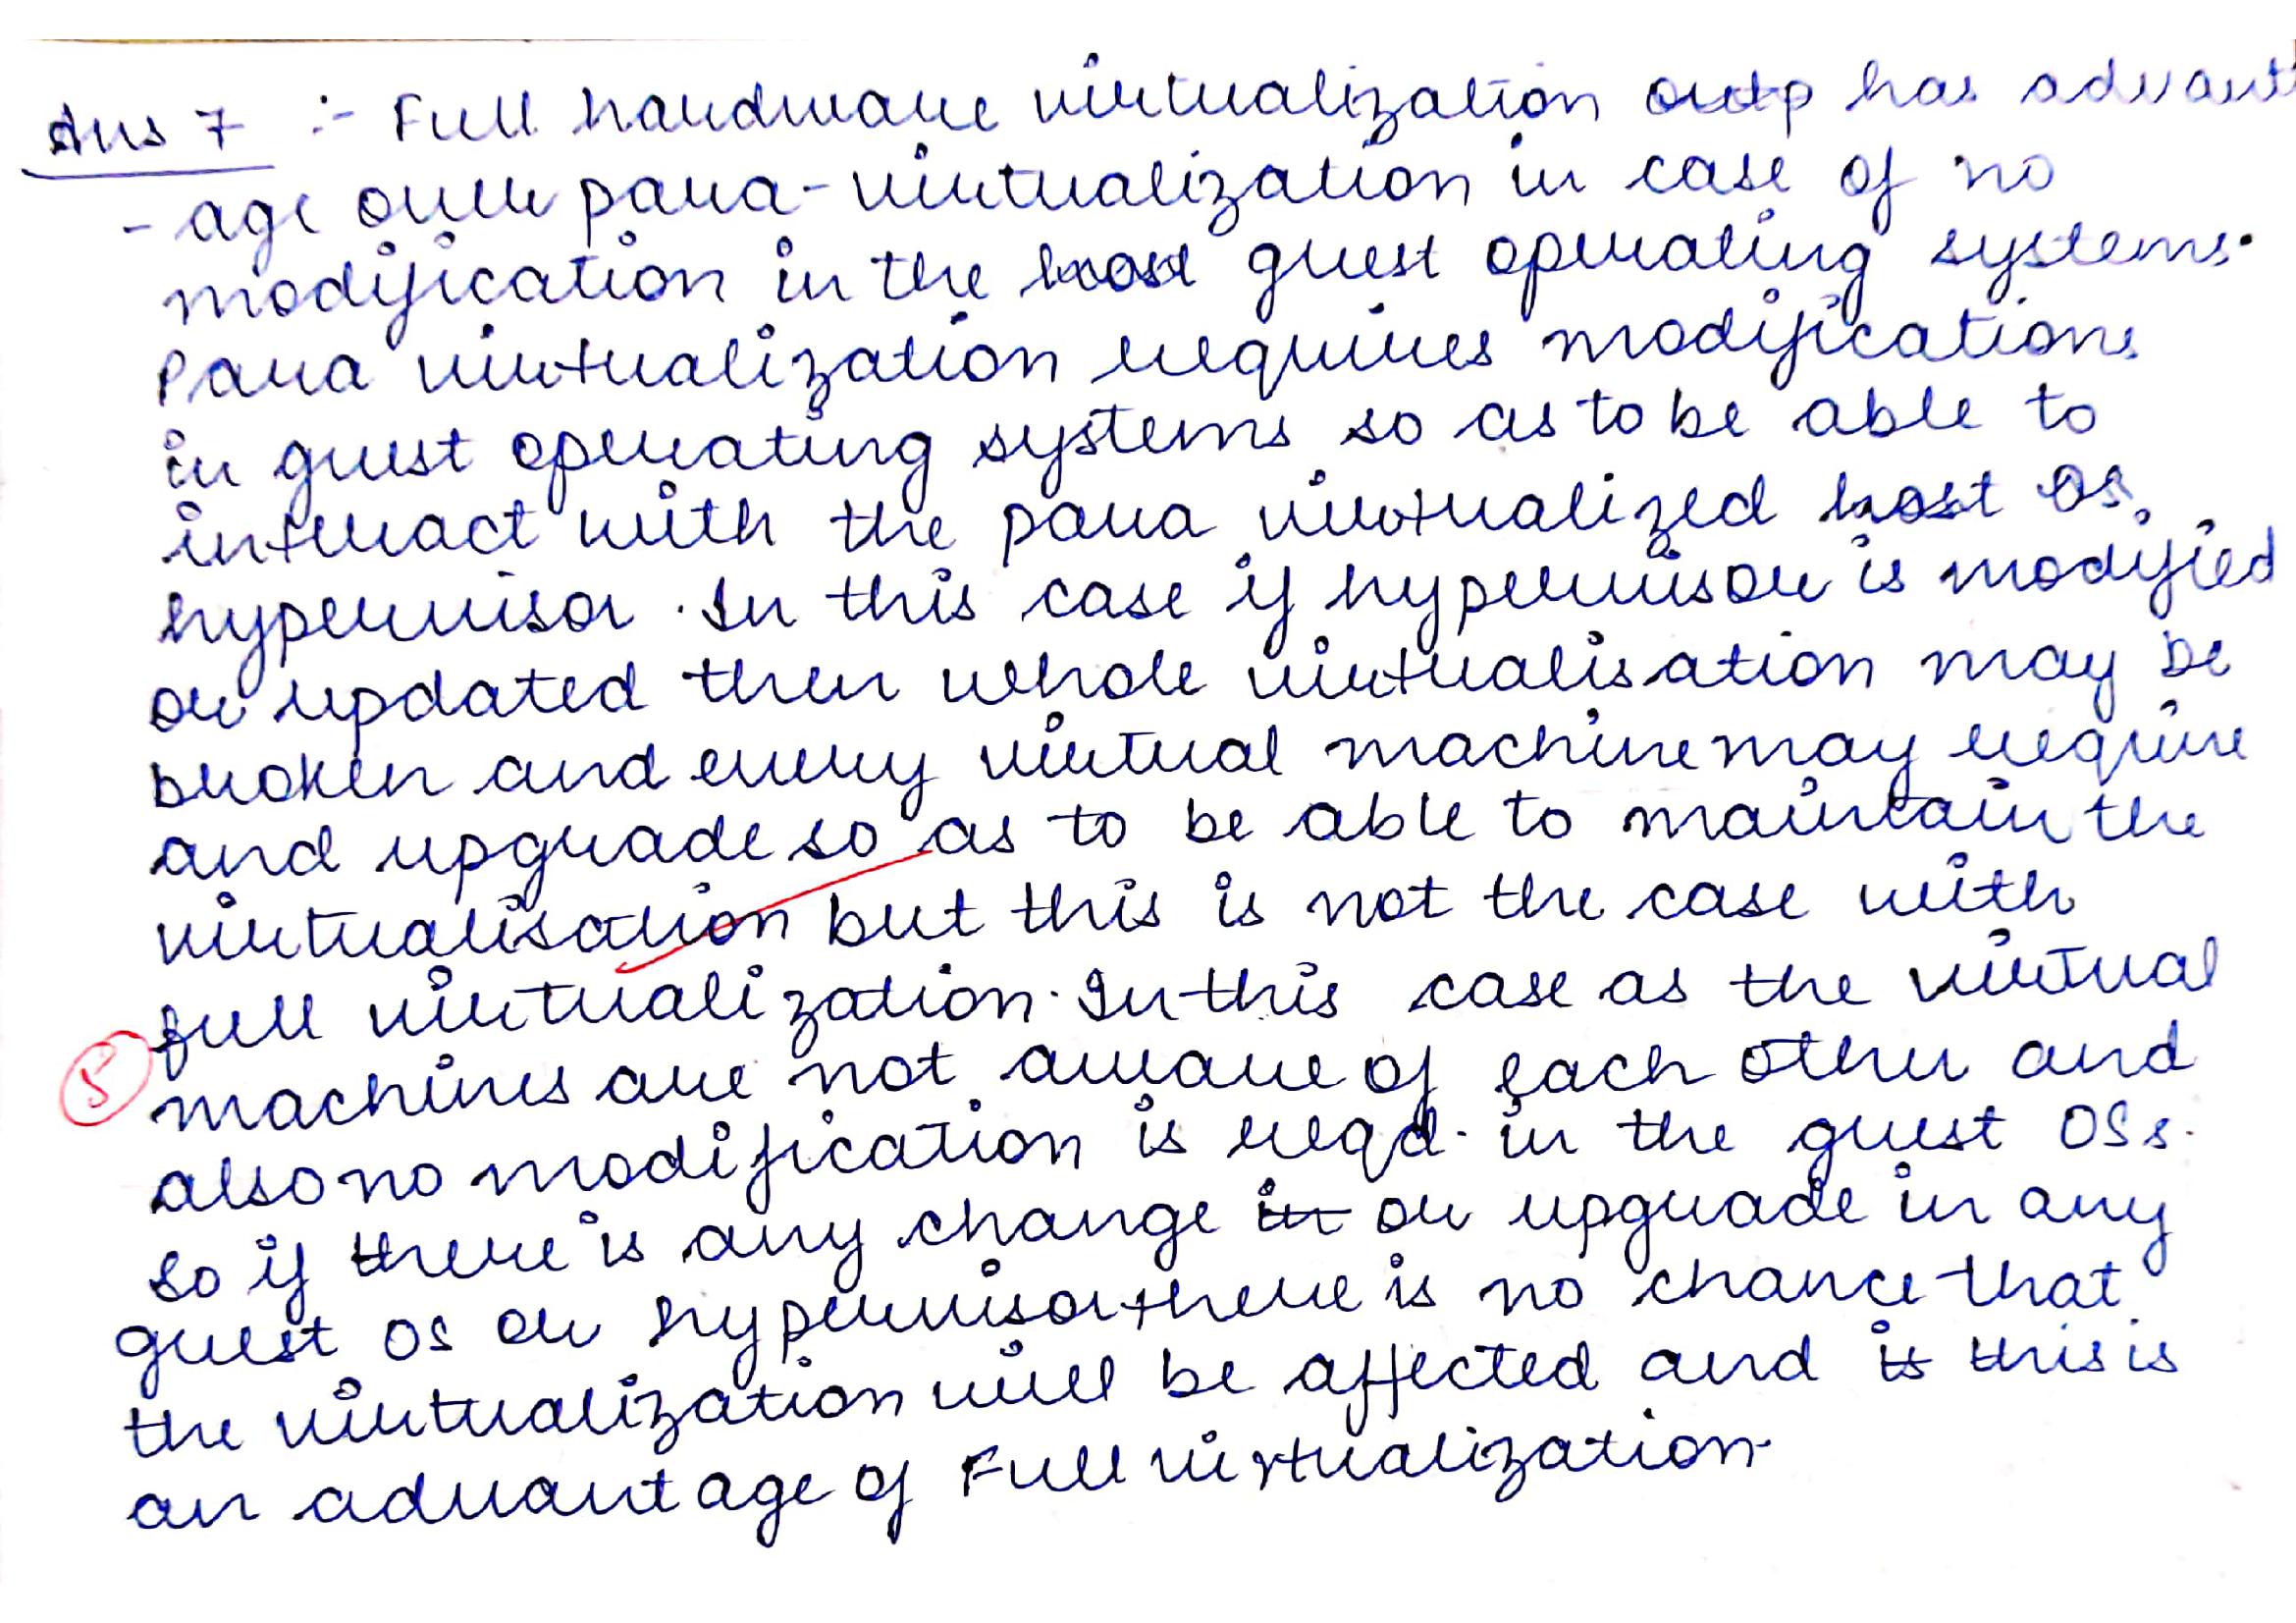 Ans 7 :- Full hardware virtualization outp has advant
- age over para-virtualization in case of no
modification in the host guest operating systems.
Para virtualization requires modifications
in guest operating systems so as to be able to
interact with the para virtualized host OS.
hypervisor. In this case if hypervisor is modified
or updated then whole virtualisation may be
broken and every virtual machine may require
and upgrade so as to be able to maintain the
virtualisation but this is not the case with
full virtualization. In this case as the virtual
5
machines are not aware of each other and
also no modification is reqd. in the guest OSs.
So if there is any change in or upgrade in any
guest OS or hypervisor there is no chance that
the virtualization will be affected and is this is
an advantage of Full virtualization.